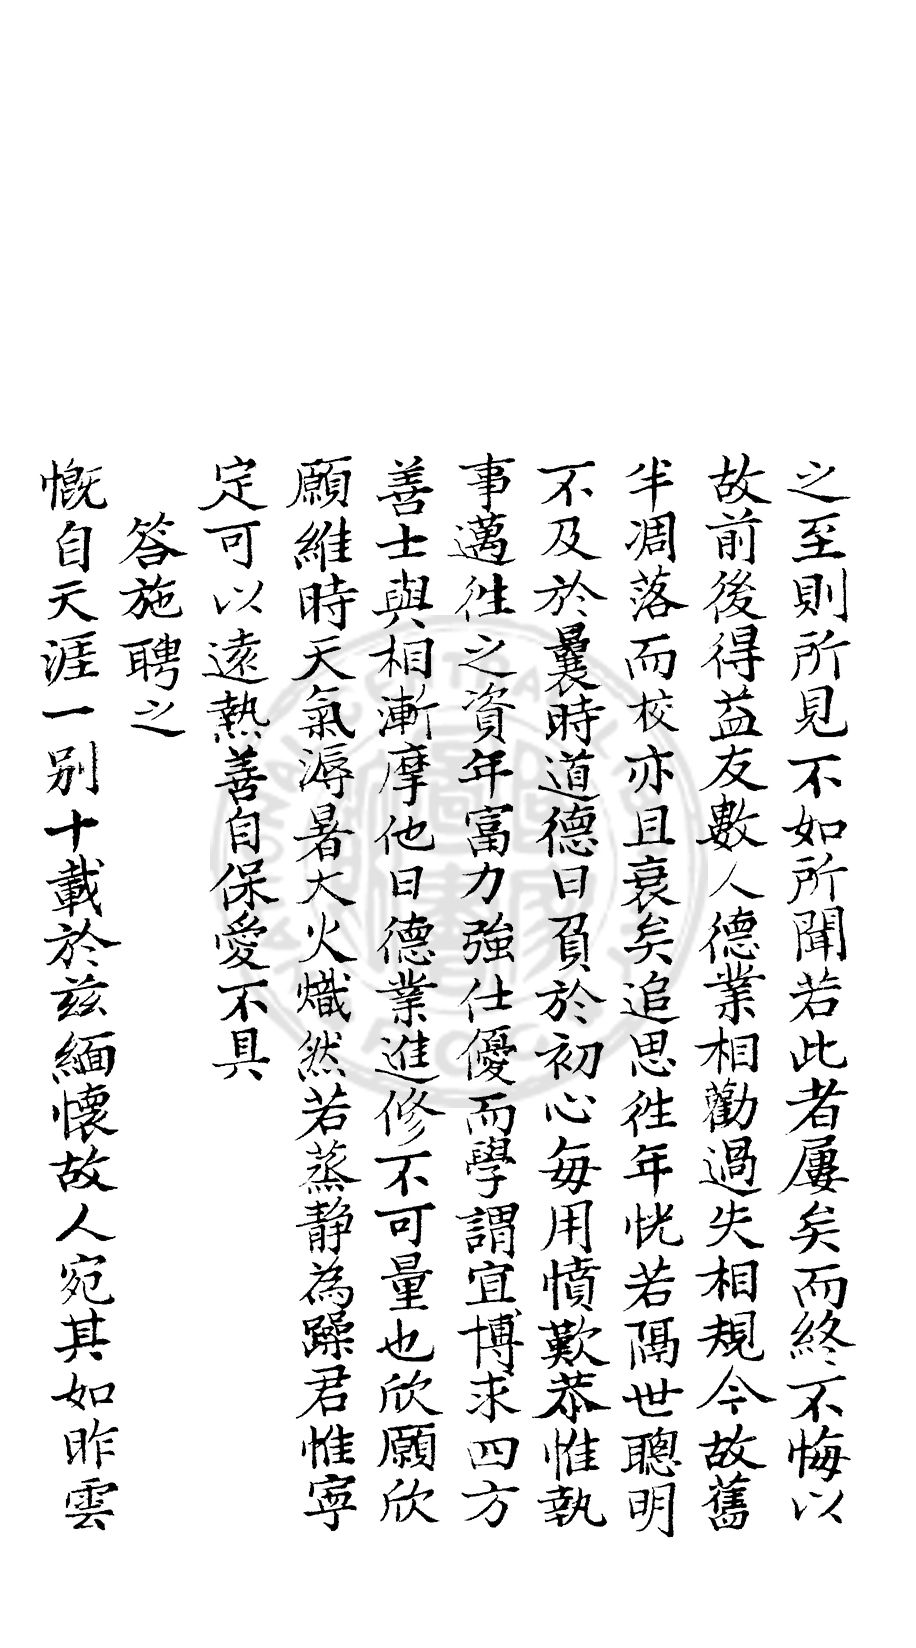 之至則所見不如所聞若此者屢矣而終不悔以
故前後得益友數人德業相勸過失相規今故舊
半凋落而校亦且衰矣追思往年恍若隔世聰明
不及於曩時道德日負於初心每用憤歎恭惟執
事邁往之資年富力強仕優而學謂宜博求四方
善士與相漸摩他日德業進修不可量也欣願欣
願維時天氣溽暑大火熾然若蒸静為躁君惟寧
定可以遠熱善自保愛不具
答施聘之
慨自天涯一别十載於兹緬懷故人宛其如昨雲